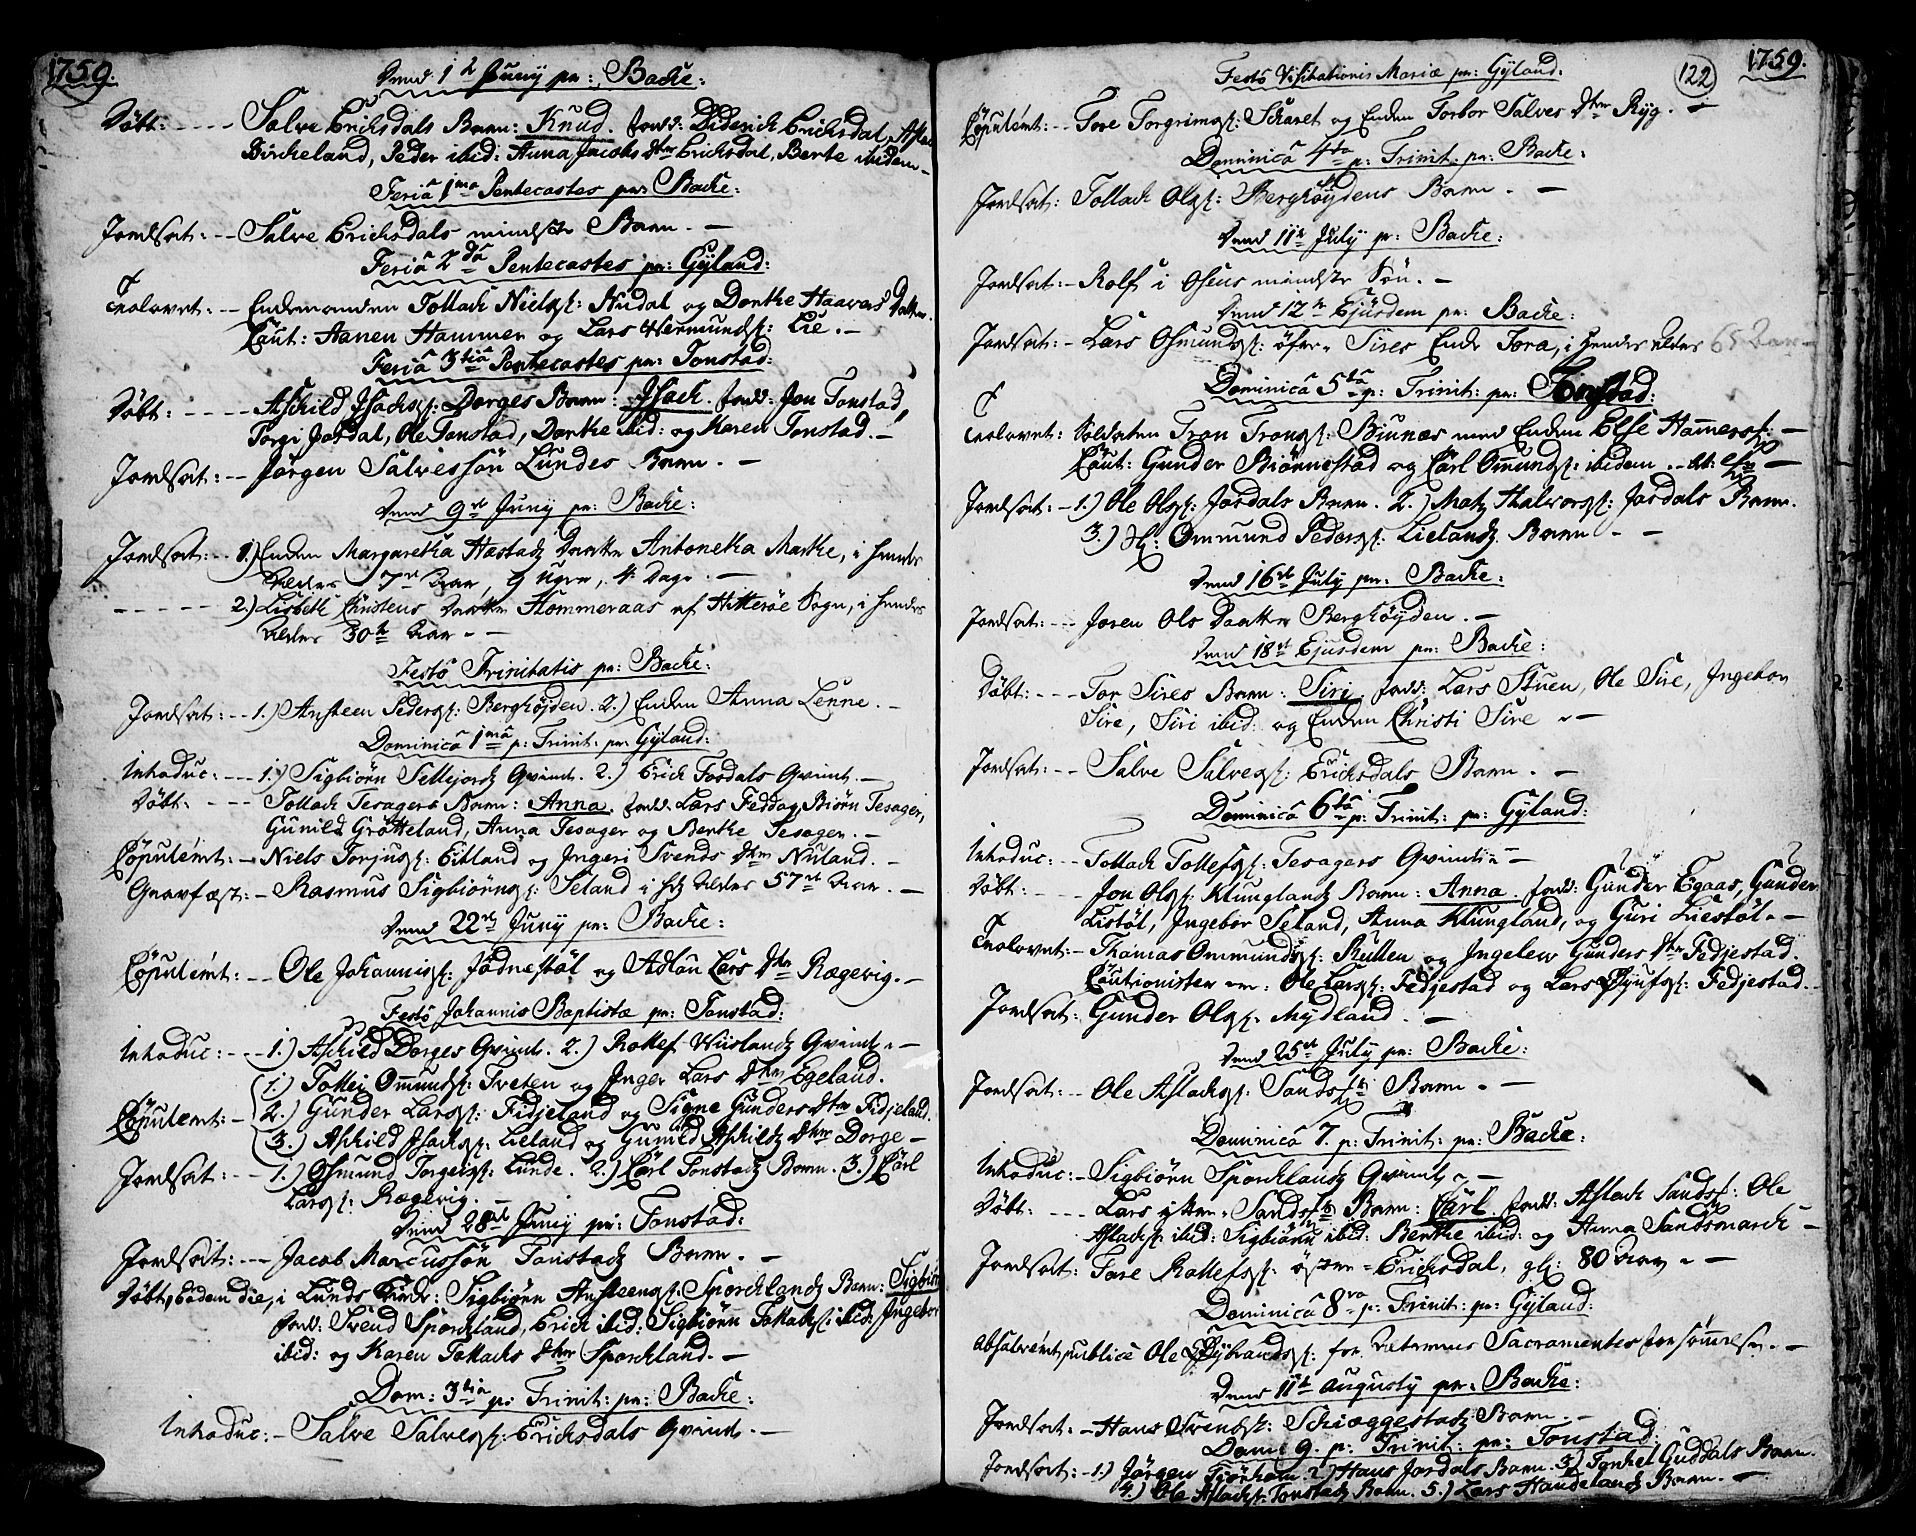 1759.
Dend 12 Juny pr: Backe:
Døbt: - - - - Salve Ericksdals Barn: Knud. fadd: Diderich Ericksdal,
Birckeland, Peder ibid: Anna Jacobs Dtter Ericksdal, Berte ibidem -
Feriâ 1ma Pentecostes pr: Backe:
Jordsat: - - Salve Ericksdals mindste Barn. -
Feriâ 2da Pentecostes pr: Gyland:
Trolovet: - - Endemanden Tollach Nielss: Nudal og Dorthe Haavars Datter.
Caut: Aanen Hammer og Lars Hermunds: Lie. -
Feriâ 3tia Pentecostes pr: Tonstad:
Døbt: - - - - Aschild Isachs: Dorges Barn: Isach. fadd: Jon Tonstad,
Torgi Josdal, Ole Tonstad, Dorthe ibid: og Karen Tonstad. -
Jordsat: - - Jørgen Salvessøn Lundes Barn. -
Dend 9de Juny pr: Backe:
Jordsat: - - 1.) Enden Margaretha Hastads Daatter Antonetha Marthe, i hendes
Alders 7de Aar, 9 Uger, 4 Dage. -
- - - - - 2.) Lisbeth Christens Daatter Flommeraas af Hitterøe Sogn, i hendes
Alders 30te Aar. -
Festô Trinitatis pr: Backe:
Jordsat: - - 1.) Ansteen Peders: Berghøyden. 2.) Enden Anna Lenne. -
Dominicâ 1mâ p: Trinit: pr: Gyland:
Introduc: - - - 1.) Sigbiørn Sellejords Qvinde. 2.) Erick Josdals Qvinde. -
Døbt: - - - Tollach Tesagers Barn: Anna. fadd: Lars Feddag, Biørn Tesager,
Gunild Grøtteland, Anna Tesager og Berthe Tesager. -
Copuleret: - Niels Torjus: Eitland og Ingeri Svends Dtter Nuland. -
Gravfæst: - Rasmus Sigbiørns: Seland i hds Alders 57de Aar. -
Dend 22de Juny pr: Backe:
Copuleret: - - Ole Johannis: Jødnestøl og Adlou Lars Dtter Rægevig. -
Festô Johannis Baptistæ pr: Tonstad:
Introduc: - - - 1.) Aschild Dorges Qvinde. 2.) Rollef Wiislands Qvinde. -
1.) Tollei Omunds: Treten og Inger Lars Dtter Egeland.
Copuleret: - 2.) Gunder Lars: Fidjeland og Signe Gunders Dtter Fidjeland.
3.) Aschild Isachs: Lieland og Gunild Aschilds Dtter Dorge -
Jordsat: - 1.) Osmund Torgeis: Lunde. 2.) Carl Tonstads Barn. 3.) Carl
Lars: Rægevig. -
Dend 28de Juny pr: Tonstad:
Jordsat: - - Jacob Marcussøn Tonstads Barn. -
Døbt, Eodem Die, i Lunds Kirke: Sigbiørn Ansteens: Sporcklands Barn: Sigbiørn
fadd: Svend Sporckland, Erich ibid: Sigbiørn Tollachs: ibid: Ingebor
ibid: og Karen Tollachs Dtter Sporckland. -
Dom: 3tiâ p: Trinit: pr: Backe:
Introduc: - Salve Salves: Ericksdals Qvinde. -
122
1759.
Festô Visitationis Mariæ pr: Gyland:
Copuleret: - - Tore Torgrims: Scharet og Enden Torbor Salves Dtter Ryg. -
Dominicâ 4ta p: Trinit: pr: Backe:
Jordsat: Tollach Ols: Berghøydens Barn. -
Dend 11te July pr: Backe:
Jordsat: - Rolf i Osens mindste Søn. -
Dend 12te Ejusdem pr: Backe:
Jordsat: - Lars Osmunds: øfre Sires Enke Tora, i hendes alder 65 Aar -
Dominicâ 5tâ p: Trinit: pr: Tonstad:
Trolovet: Soldaten Tron Trons: Biunes med Enden Else Hammers: -
Caut: Gunder Biønnestad og Carl Omunds: ibidem. -
Jordsat: - 1.) Ole Ols: Josdals Barn. 2.) Mats Halvors: Josdals Barn.
3.) Ommund Peders: Lielands Barn - -
Dend 16de July pr: Backe:
Jordsat: - - Joren Ols Daatter Berghøyden. -
Dend 18de Ejusdem pr: Backe:
Døbt: - - - Tor Sires Barn: Siri. fadd: Lars Stuen, Ole Sire, Ingebor
Sire, Siri ibid: og Enden Christi Sire -
Jordsat: - - Salve Salves: Ericksdals Barn. -
Dominicâ 6tâ p: Trinit: pr: Gyland:
Introduc: - - Tollach Tollefs: Tesagers Qvinde -
Døbt: - - Jon Ols: Klunglands Barn: Anna. fadd: Gunder Egaas, Gunder
Listøl, Ingebor Seland, Anna Klungland, og Guri Liestøl. -
Trolovet: - Thomas Ommunds: Rullen og Ingelev Gunders Dtter Fedjestad.
Cautionister ere: Ole Lars: Fedjestad og Lars Siufs: Fedjestad. -
Jordsat: Gunder Ols: Mydland. -
Dend 25de July pr: Backe:
Jordsat: - - Ole Aslachs: Sands: Barn. -
Dominicâ 7. p: Trinit: pr: Backe:
Introduc: - Sigbiørn Sporcklands Qvinde -
Døbt: - - - Lars ytter Sands: Barn: Carl. fadd: Aslach Sands: Ole
Aslachs: ibid: Sigbiørn ibid: Berthe ibid: og Anna Sandsmarck -
Jordsat: Tore Rollefs: østre Ericksdal, gl: 80 Aar -
Dominicâ 8va p: Trinit: pr: Gyland:
Absolveret, publicè Ole Sybrands: for Sacramentes forsømmelse. -
Dend 11te Augusty pr: Backe:
Jordsat: - Hans Svends: Schieggestads Barn. -
Domi: 9. p: Trinit: pr: Tonstad:
Jordsat: - 1.) Jørgen Tiørhom. 2.) Hans Josdals Barn. 3.) Tonkel Guddals Barn.
4.) Ole Aslachs: Tonstads Barn. 5.) Lars Handelands Barn. -